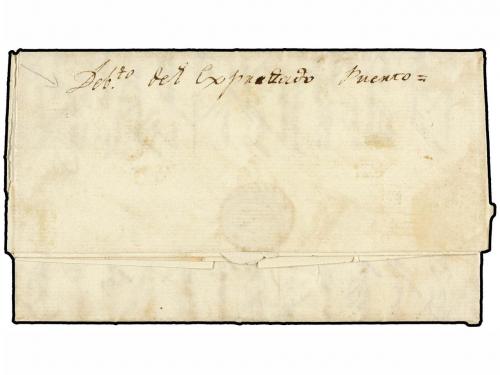 Deb.to del Expresado Puerto=